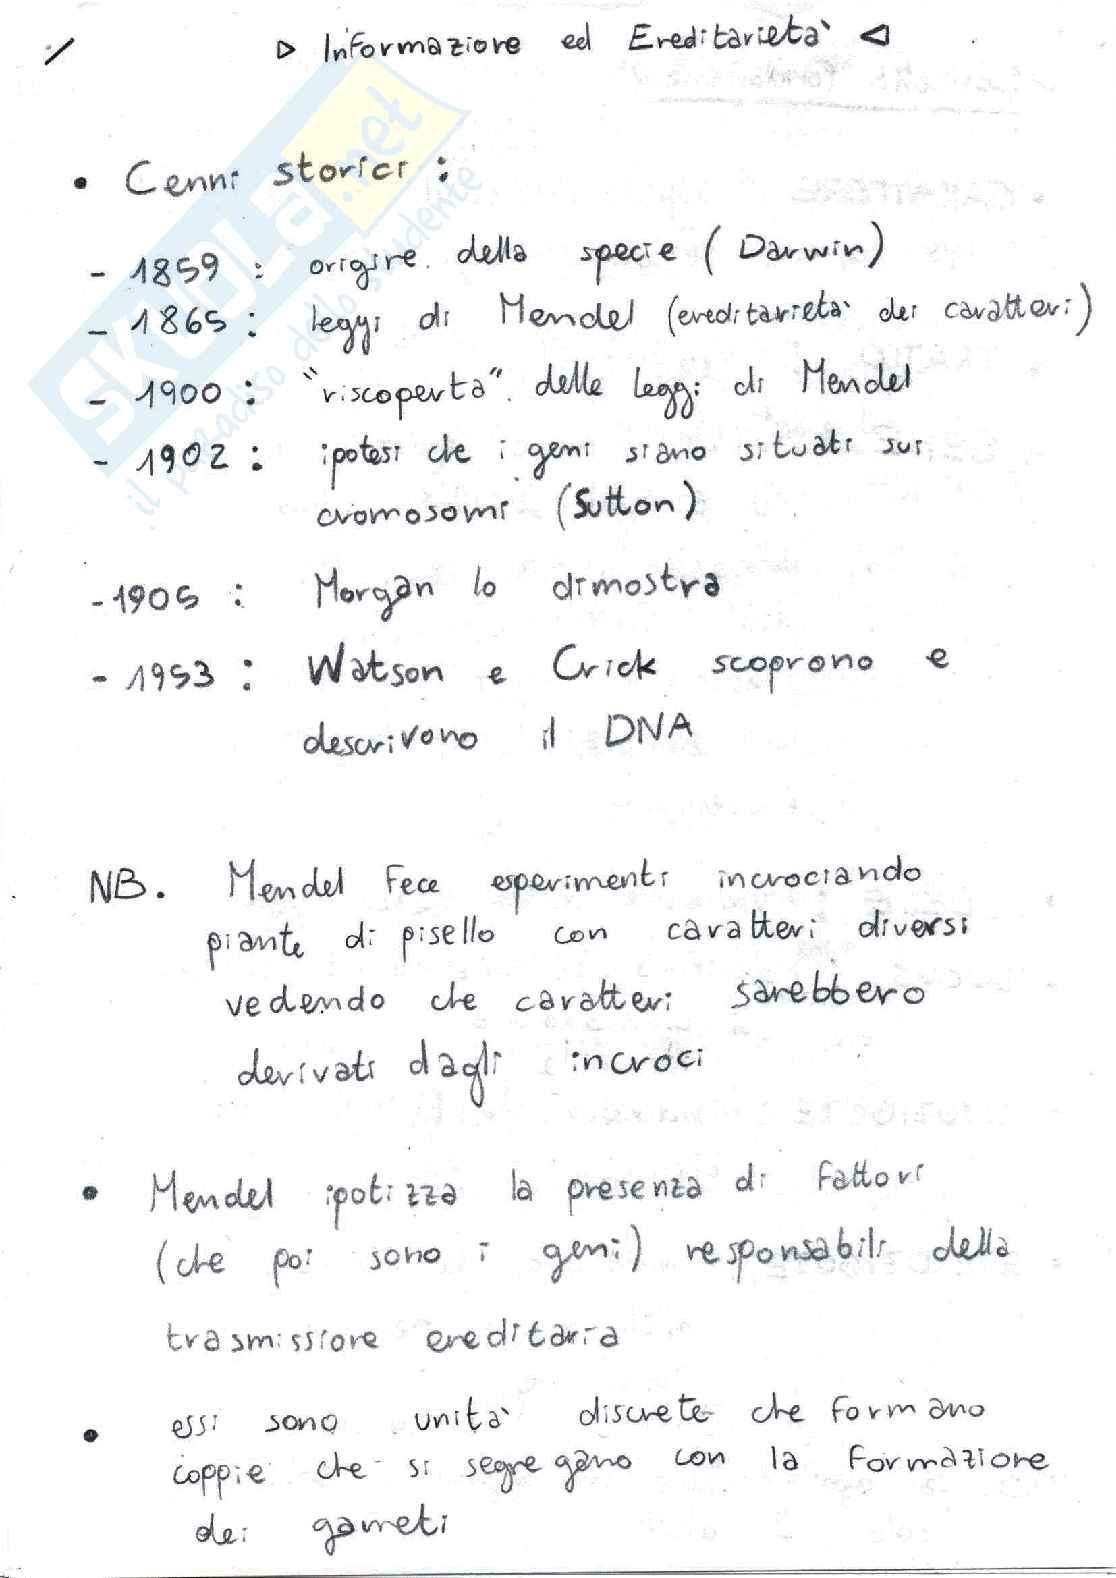 ▷ Informazione ed Ereditarietà ◁
• Cenni storici :
- 1859 : origine della specie ( Darwin )
- 1865 : leggi di Mendel (ereditarietà dei caratteri)
- 1900 : "riscoperta" delle leggi di Mendel
- 1902 : ipotesi che i geni siano situati sui
cromosomi (Sutton)
- 1905 : Morgan lo dimostra
- 1953 : Watson e Crick scoprono e
descrivono il DNA
NB. Mendel fece esperimenti incrociando
piante di pisello con caratteri diversi
vedendo che caratteri sarebbero
derivati dagli incroci
• Mendel ipotizza la presenza di fattori
(che poi sono i geni) responsabili della
trasmissione ereditaria
• essi sono unità discrete che formano
coppie che si segregano con la formazione
dei gameti
SKUOLA.net
il paradiso dello studente